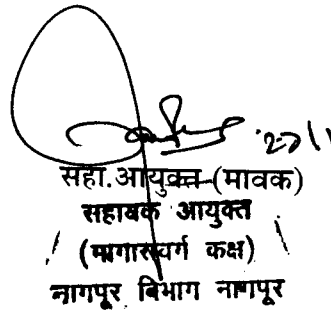 सहा.आयुक्त (मावक)
सहायक आयुक्त
(मागासवर्ग कक्ष)
नागपूर विभाग नागपूर